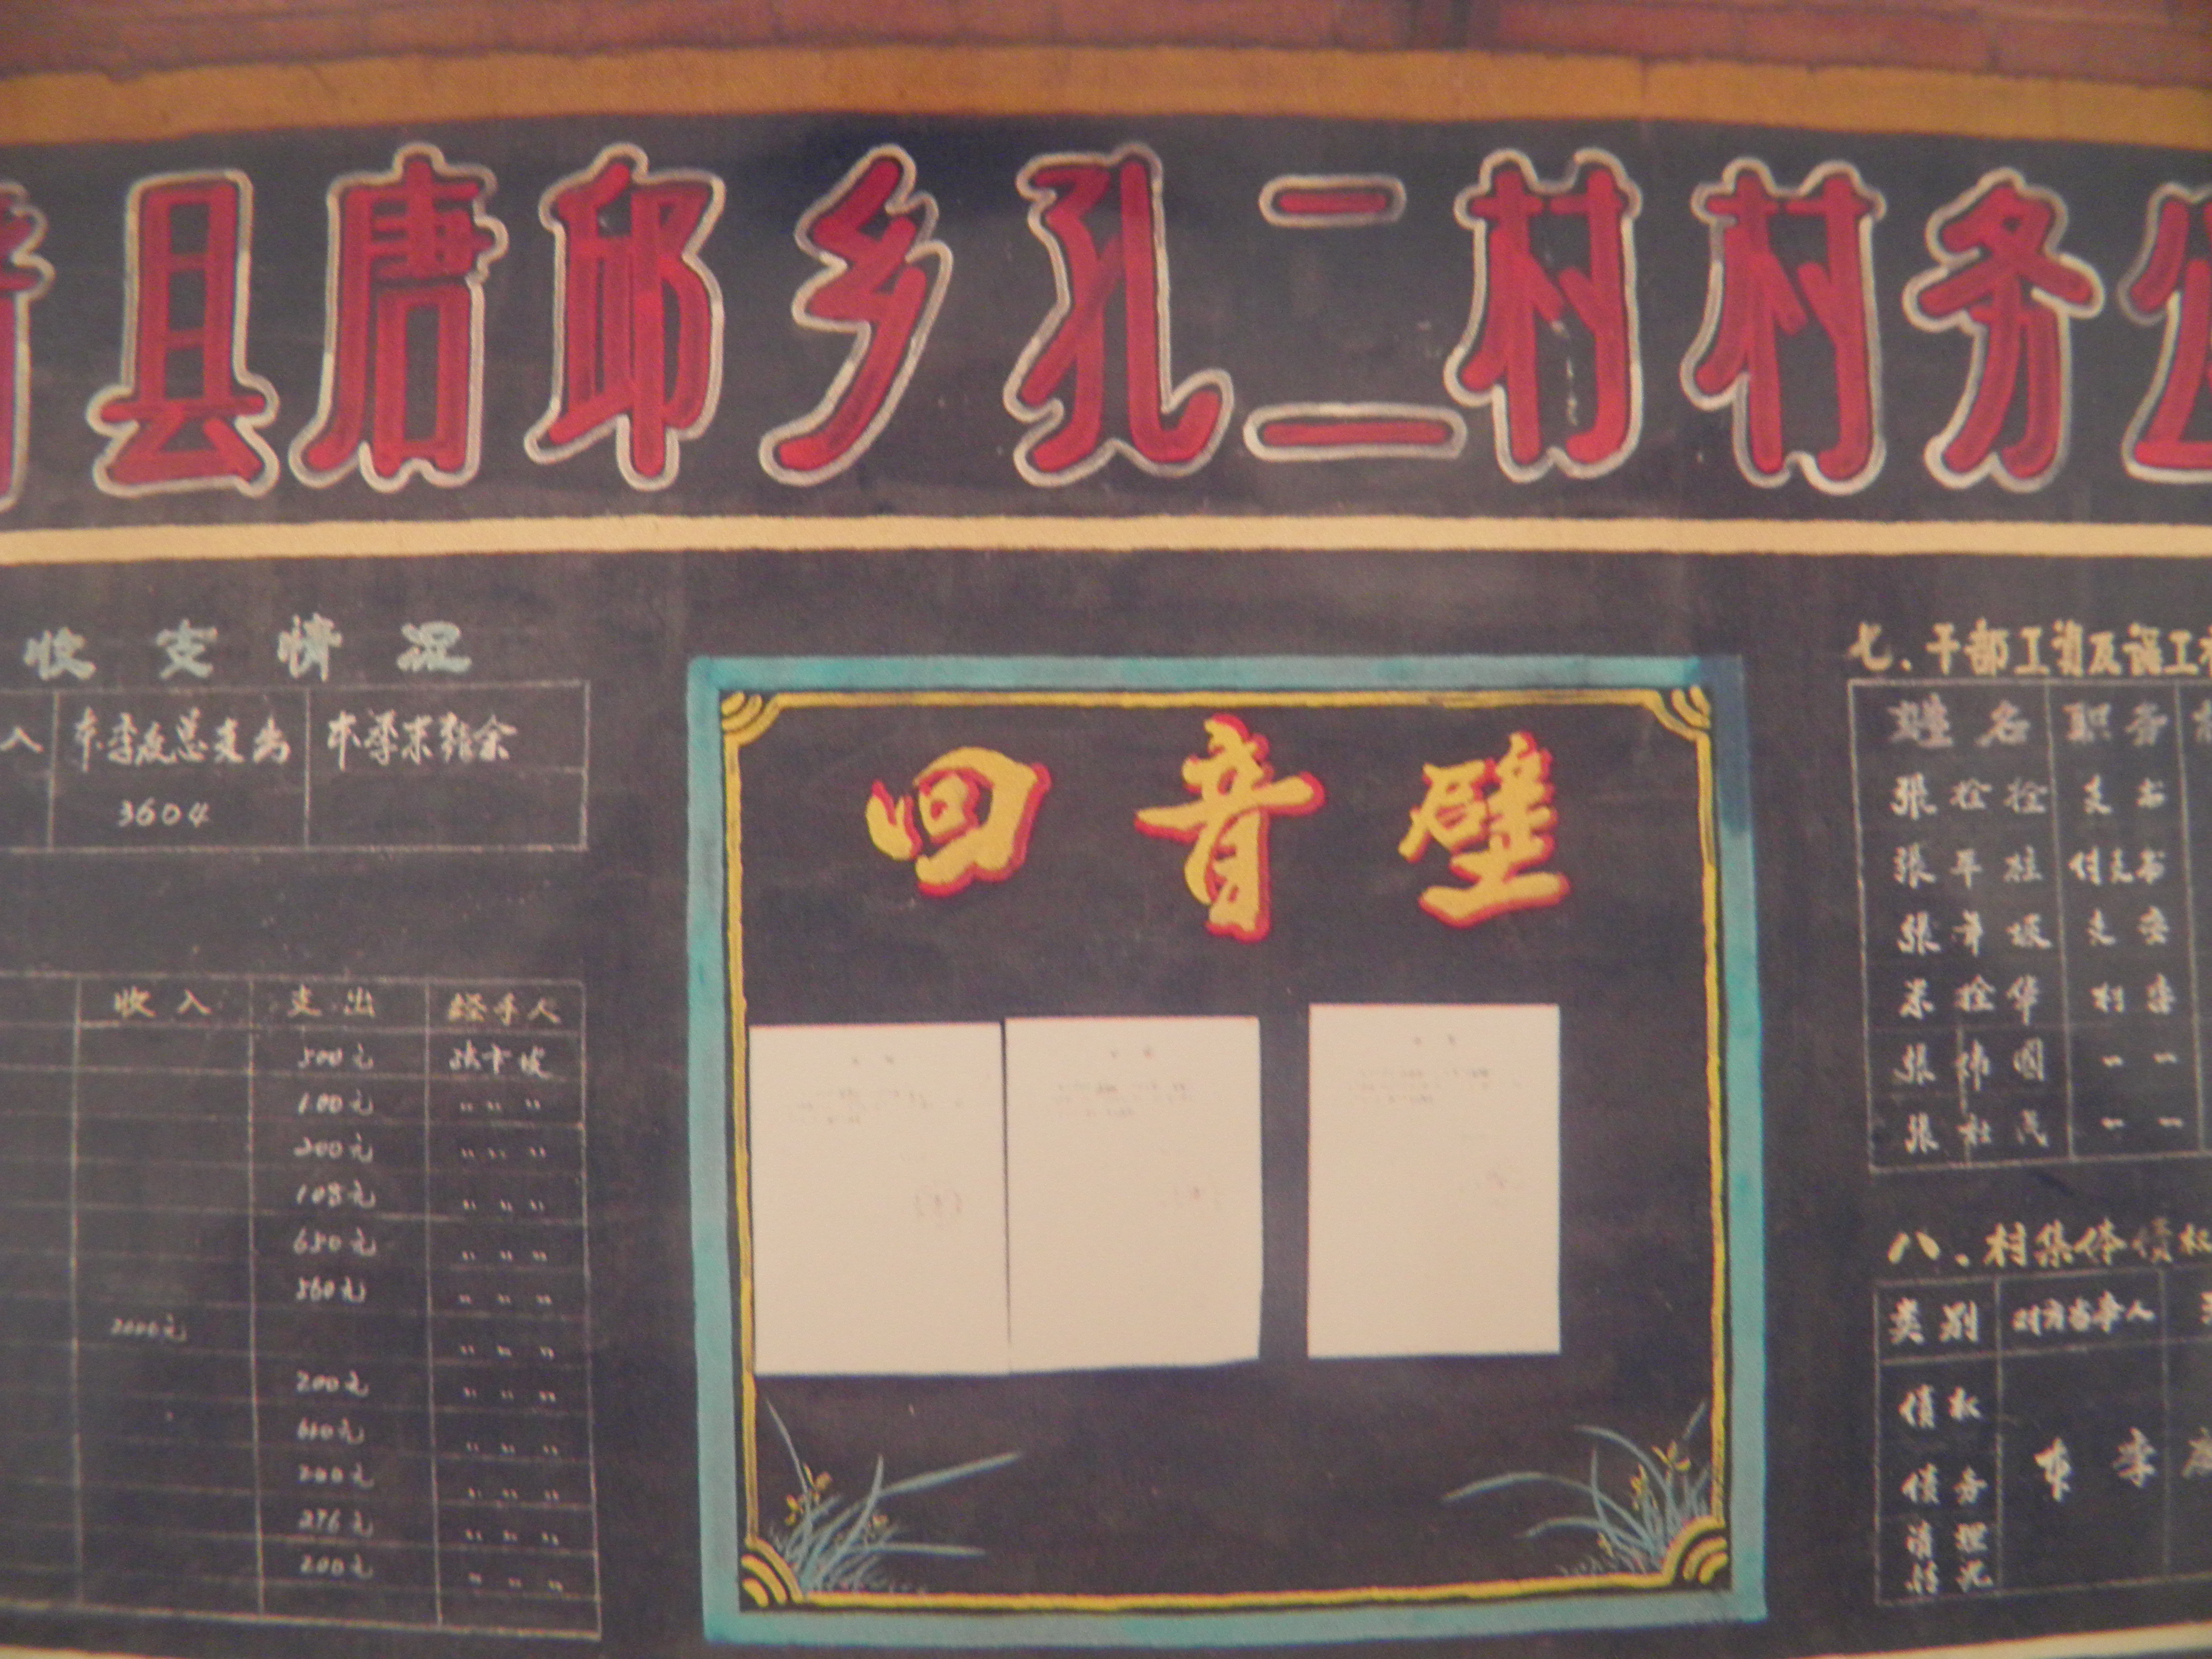 县唐邱乡孔二村村务公
收支情况
入 本季度总支出 本季末结余
3604
收入 支出 经手人
500元
100元 〃 〃 〃
200元 〃 〃 〃
108元 〃 〃 〃
650元 〃 〃 〃
560元 〃 〃 〃
2000元 〃 〃 〃
200元 〃 〃 〃
610元 〃 〃 〃
200元 〃 〃 〃
276元 〃 〃 〃
200元 〃 〃 〃
回音壁
七、干部工资及误工
姓名 职务
张拴拴 支书
张平柱 付支书
张年坡 支委
米拴华 村委
张伟国 〃 〃
张社茂 〃 〃
八、村集体债权
类别 对方当事人
债权
本季度
债务
清理
情况